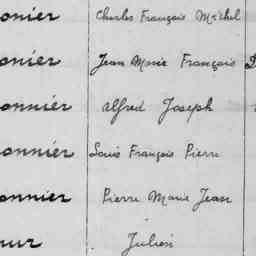 onier Charles François Michel
onier Jean Marie François
onnier Alfred Joseph
onnier Louis François Pierre
onnier Pierre Marie Jean
nur Julien